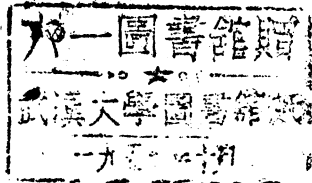 六一圖書館贈
武漢大學圖書館
一九五